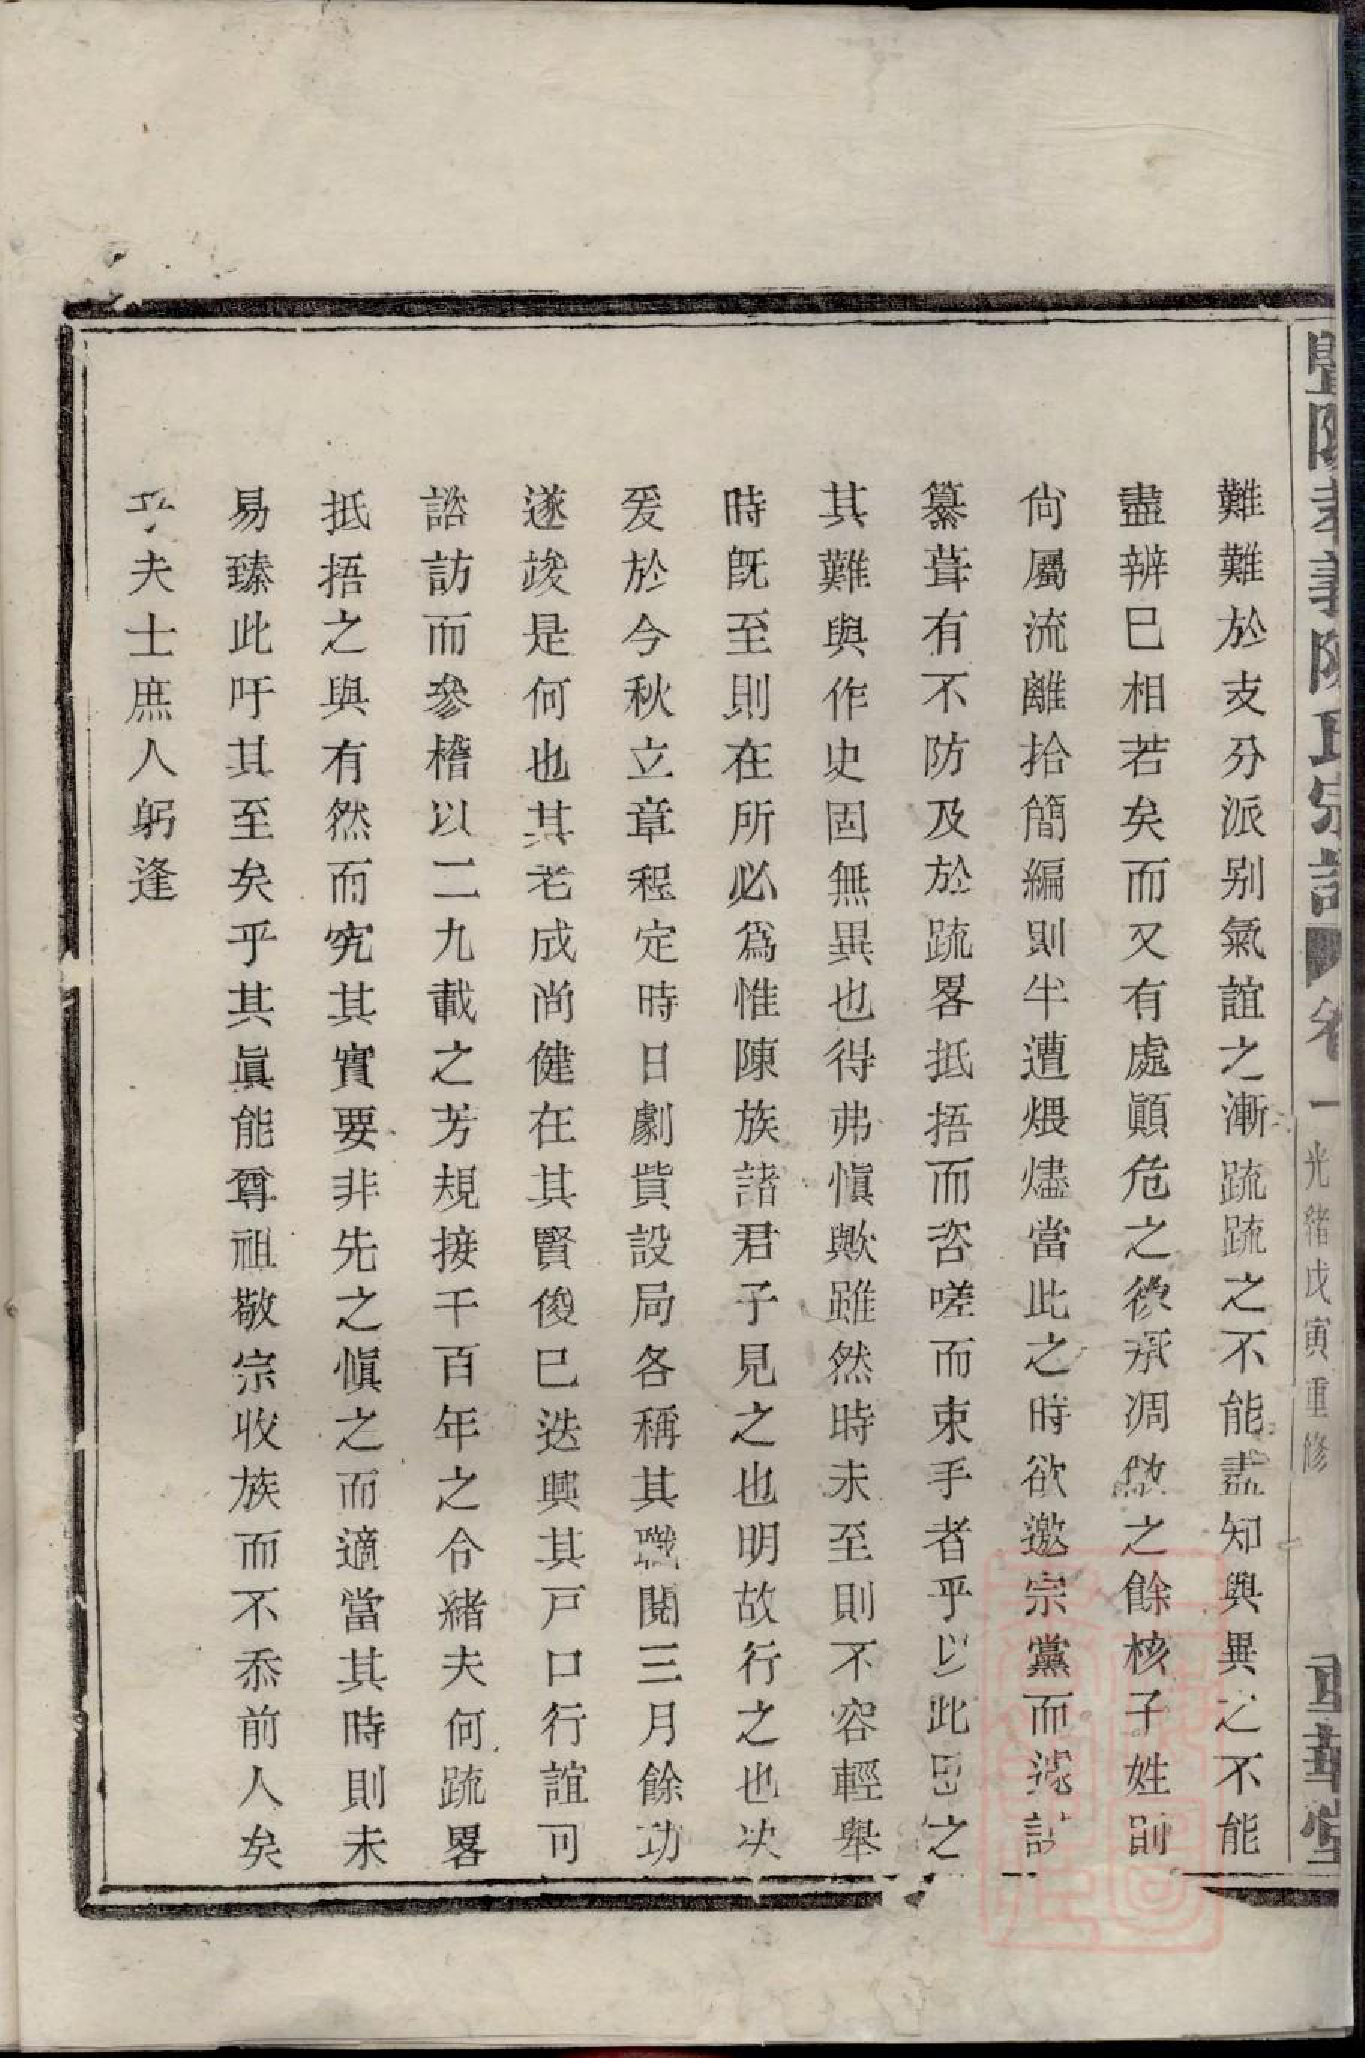 暨陽孝義陳氏宗譜 卷一 光緒戊寅重修 重華堂
難難於支分派别氣誼之漸疏疏之不能盡知與異之不能
盡辨巳相若矣而又有處顚危之後承凋敝之餘核子姓則
尙屬流離拾簡編則半遭煨燼當此之時欲邀宗黨而謀
纂葺有不防及於疏畧抵捂而咨嗟而束手者乎以此思之
其難與作史固無異也得弗愼歟雖然時未至則不容輕舉
時旣至則在所必爲惟陳族諸君子見之也明故行之也决
爰於今秋立章程定時日劇貲設局各稱其職閱三月餘功
遂竣是何也其老成尚健在其賢俊巳迭興其戸口行誼可
諮訪而參稽以二九載之芳規接千百年之令緖夫何疏畧
抵捂之與有然而究其實要非先之愼之而適當其時則未
易臻此吁其至矣乎其眞能尊祖敬宗收族而不忝前人矣
乎夫士庶人躬逢